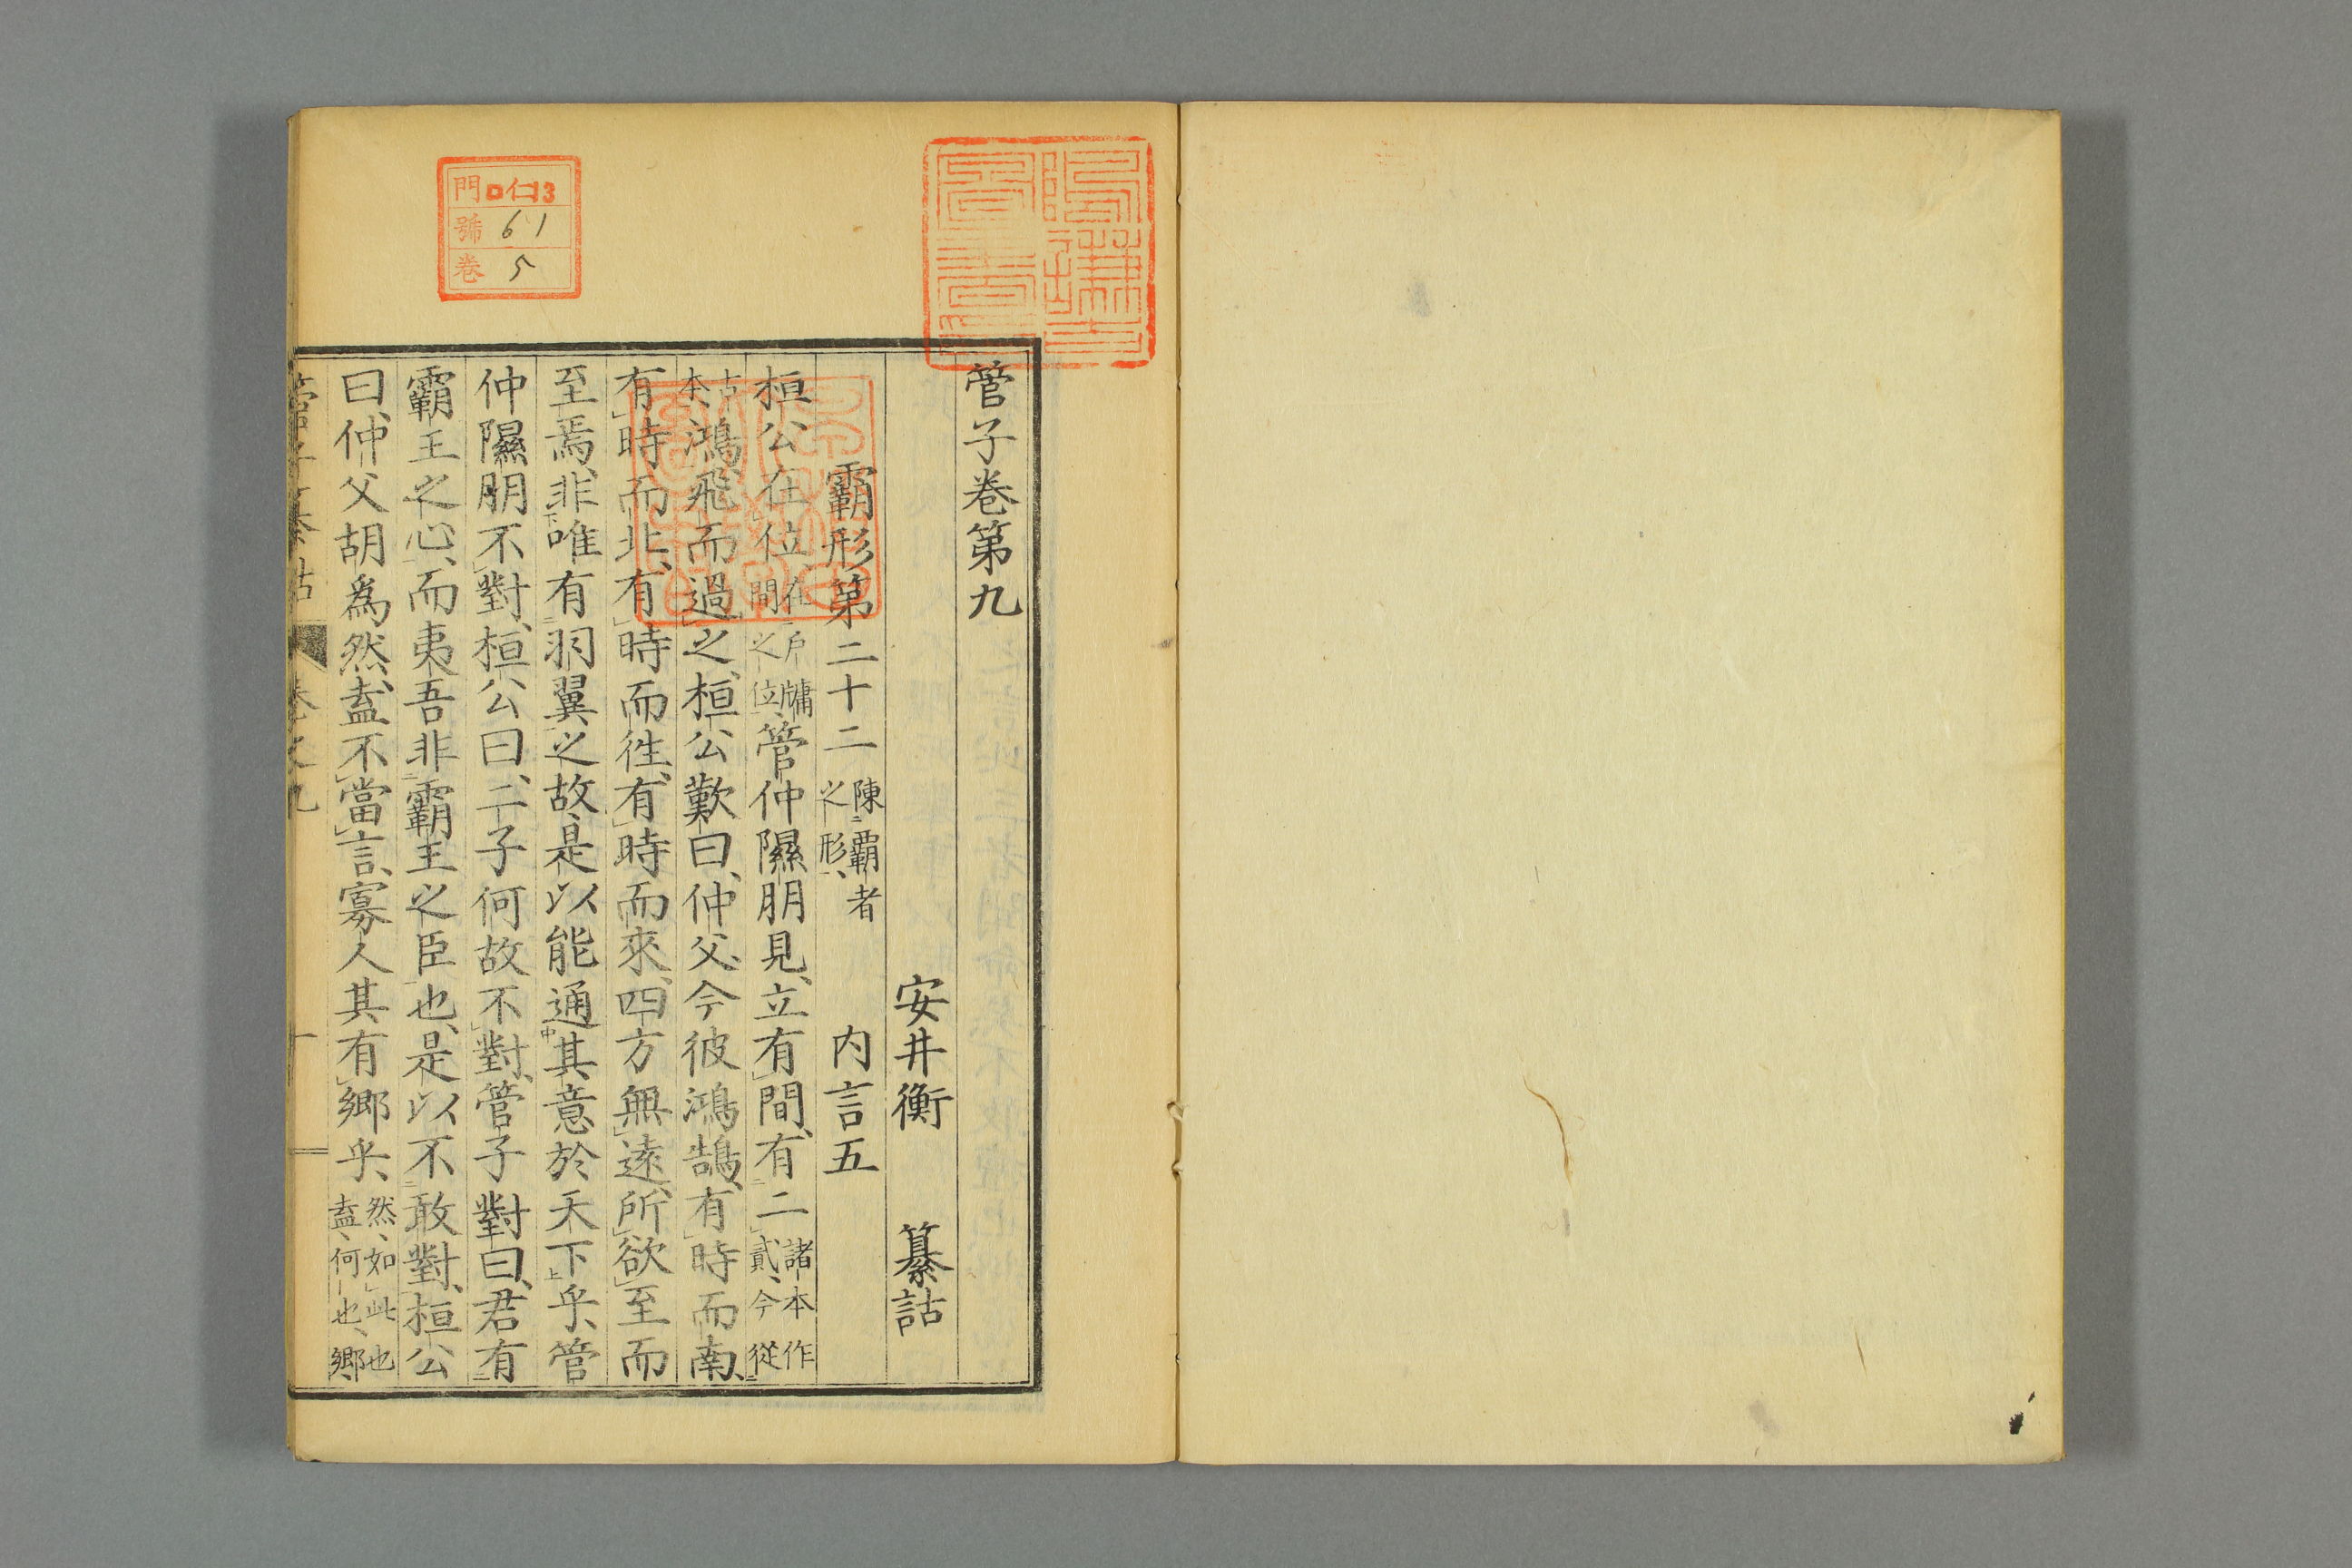 管子卷第九
安井衡 纂詁
霸形第二十二 陳霸者之形、 内言五
桓公在位、在戶牖間之位、管仲隰朋見、立有間、有二諸本作貳、今從
古本、鴻飛而過之、桓公歎曰、仲父、今彼鴻鵠、有時而南、
有時而北、有時而徃、有時而來、四方無遠、所欲至而
至焉、非唯有羽翼之故、是以能通其意於天下乎、管
仲隰朋不對、桓公曰、二子何故不對、管子對曰、君有
霸王之心、而夷吾非霸王之臣也、是以不敢對、桓公
曰、仲父胡爲然、盍不當言、寡人其有鄉乎、然、如此也、盍、何也、鄉
門 口仁13
號 61
卷 5